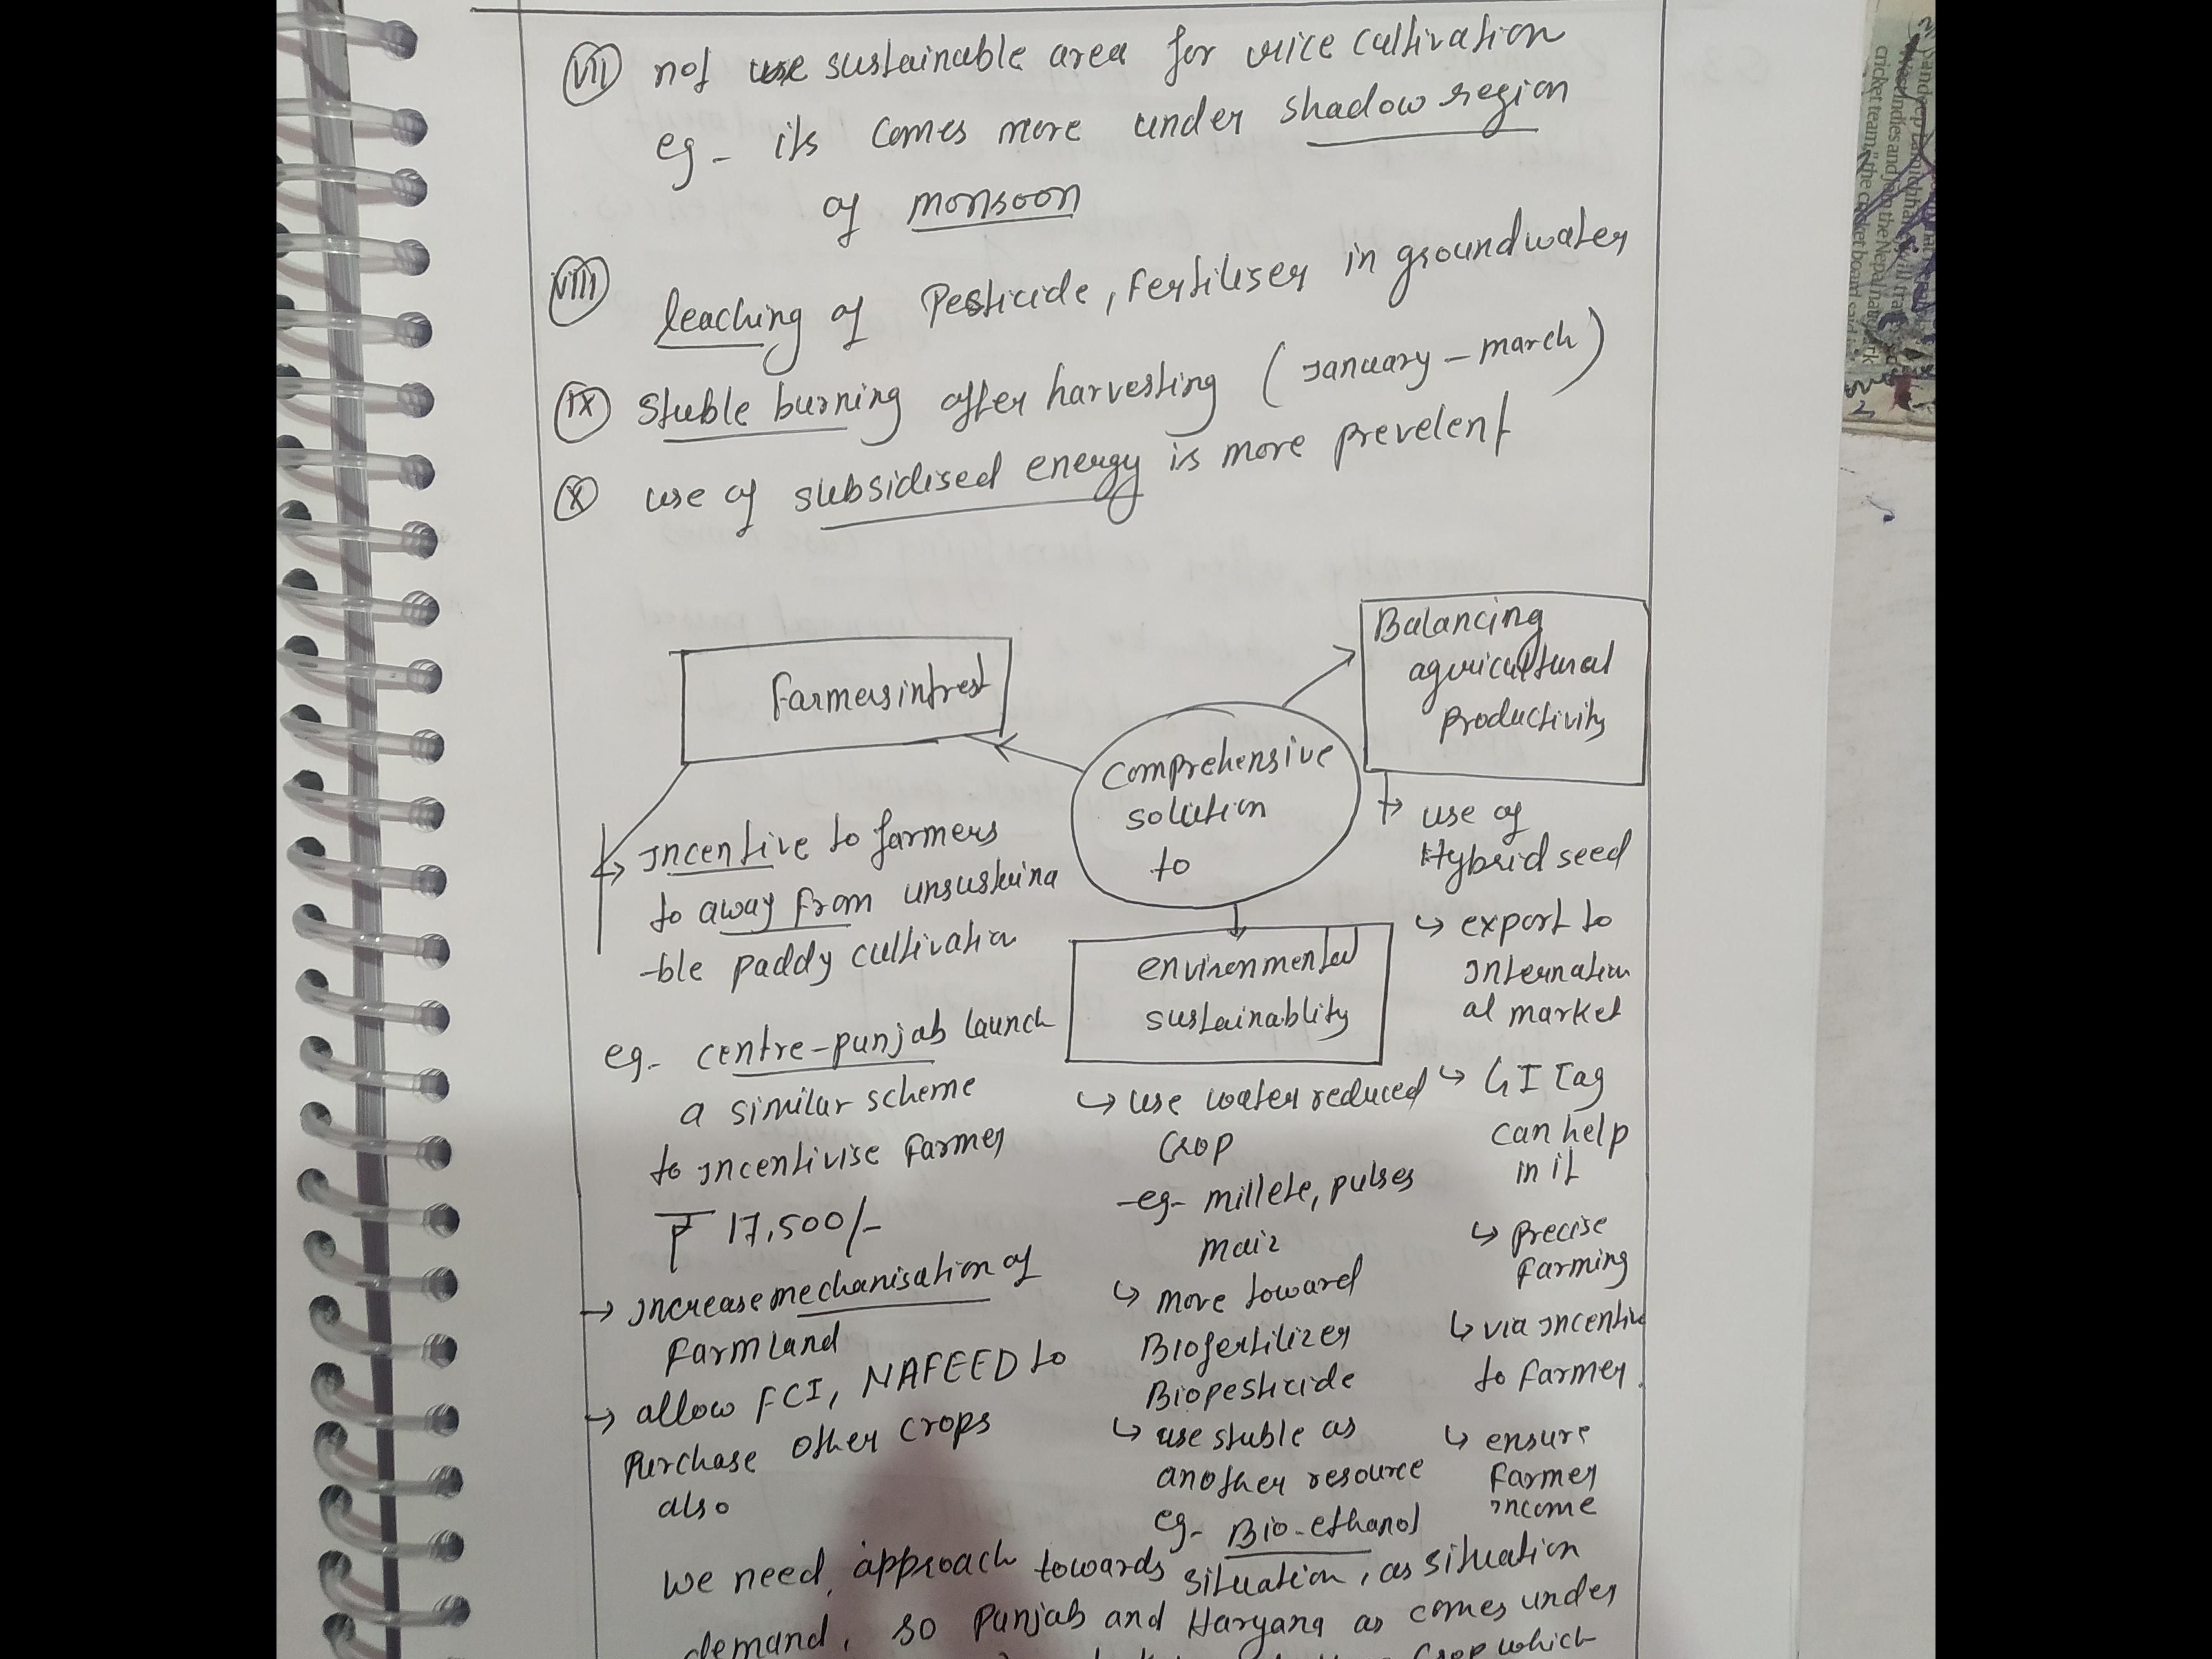 (vii) not use sustainable area for rice cultivation
eg - its comes more under shadow region
of monsoon
(viii) leaching of Pesticide, Fertiliser in groundwater
(ix) Stuble burning after harvesting (January - march)
(x) use of subsidised energy is more prevelent
Farmers intrest
Balancing
agricultural
productivity
comprehensive
solution
to
environmental
sustainablity
↳ Incentive to farmers
to away from unsustaina
-ble paddy cultivation
eg- centre-punjab launch
a similar scheme
to incentivise farmer
₹ 17,500/-
→ increase mechanisation of
Farmland
→ allow FCI, NAFEED to
Purchase other crops
also
↳ use water reduced
crop
-eg- millete, pulses
maiz
↳ move toward
Biofertilizer
Biopesticide
↳ use stuble as
another resource
eg- Bio-ethanol
↳ use of
Hybrid seed
↳ export to
Internation
al market
↳ GI Tag
can help
in it
↳ precise
farming
↳ via incentive
to farmer.
↳ ensure
farmer
income
we need approach towards situation, as situation
demand, so Punjab and Haryana as comes under
crop which
pandeep Lamichhane will tra
West Indies and join the Nepal nat
cricket team," the cricket board said